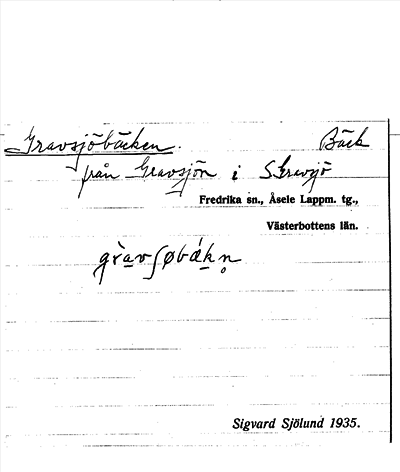 Gravsjöbäcken. Bäck
från Gravsjön i S. Gravsjö
Fredrika sn., Åsele Lappm. tg.,
Västerbottens län.
gràvʃøbák̠n̥
Sigvard Sjölund 1935.